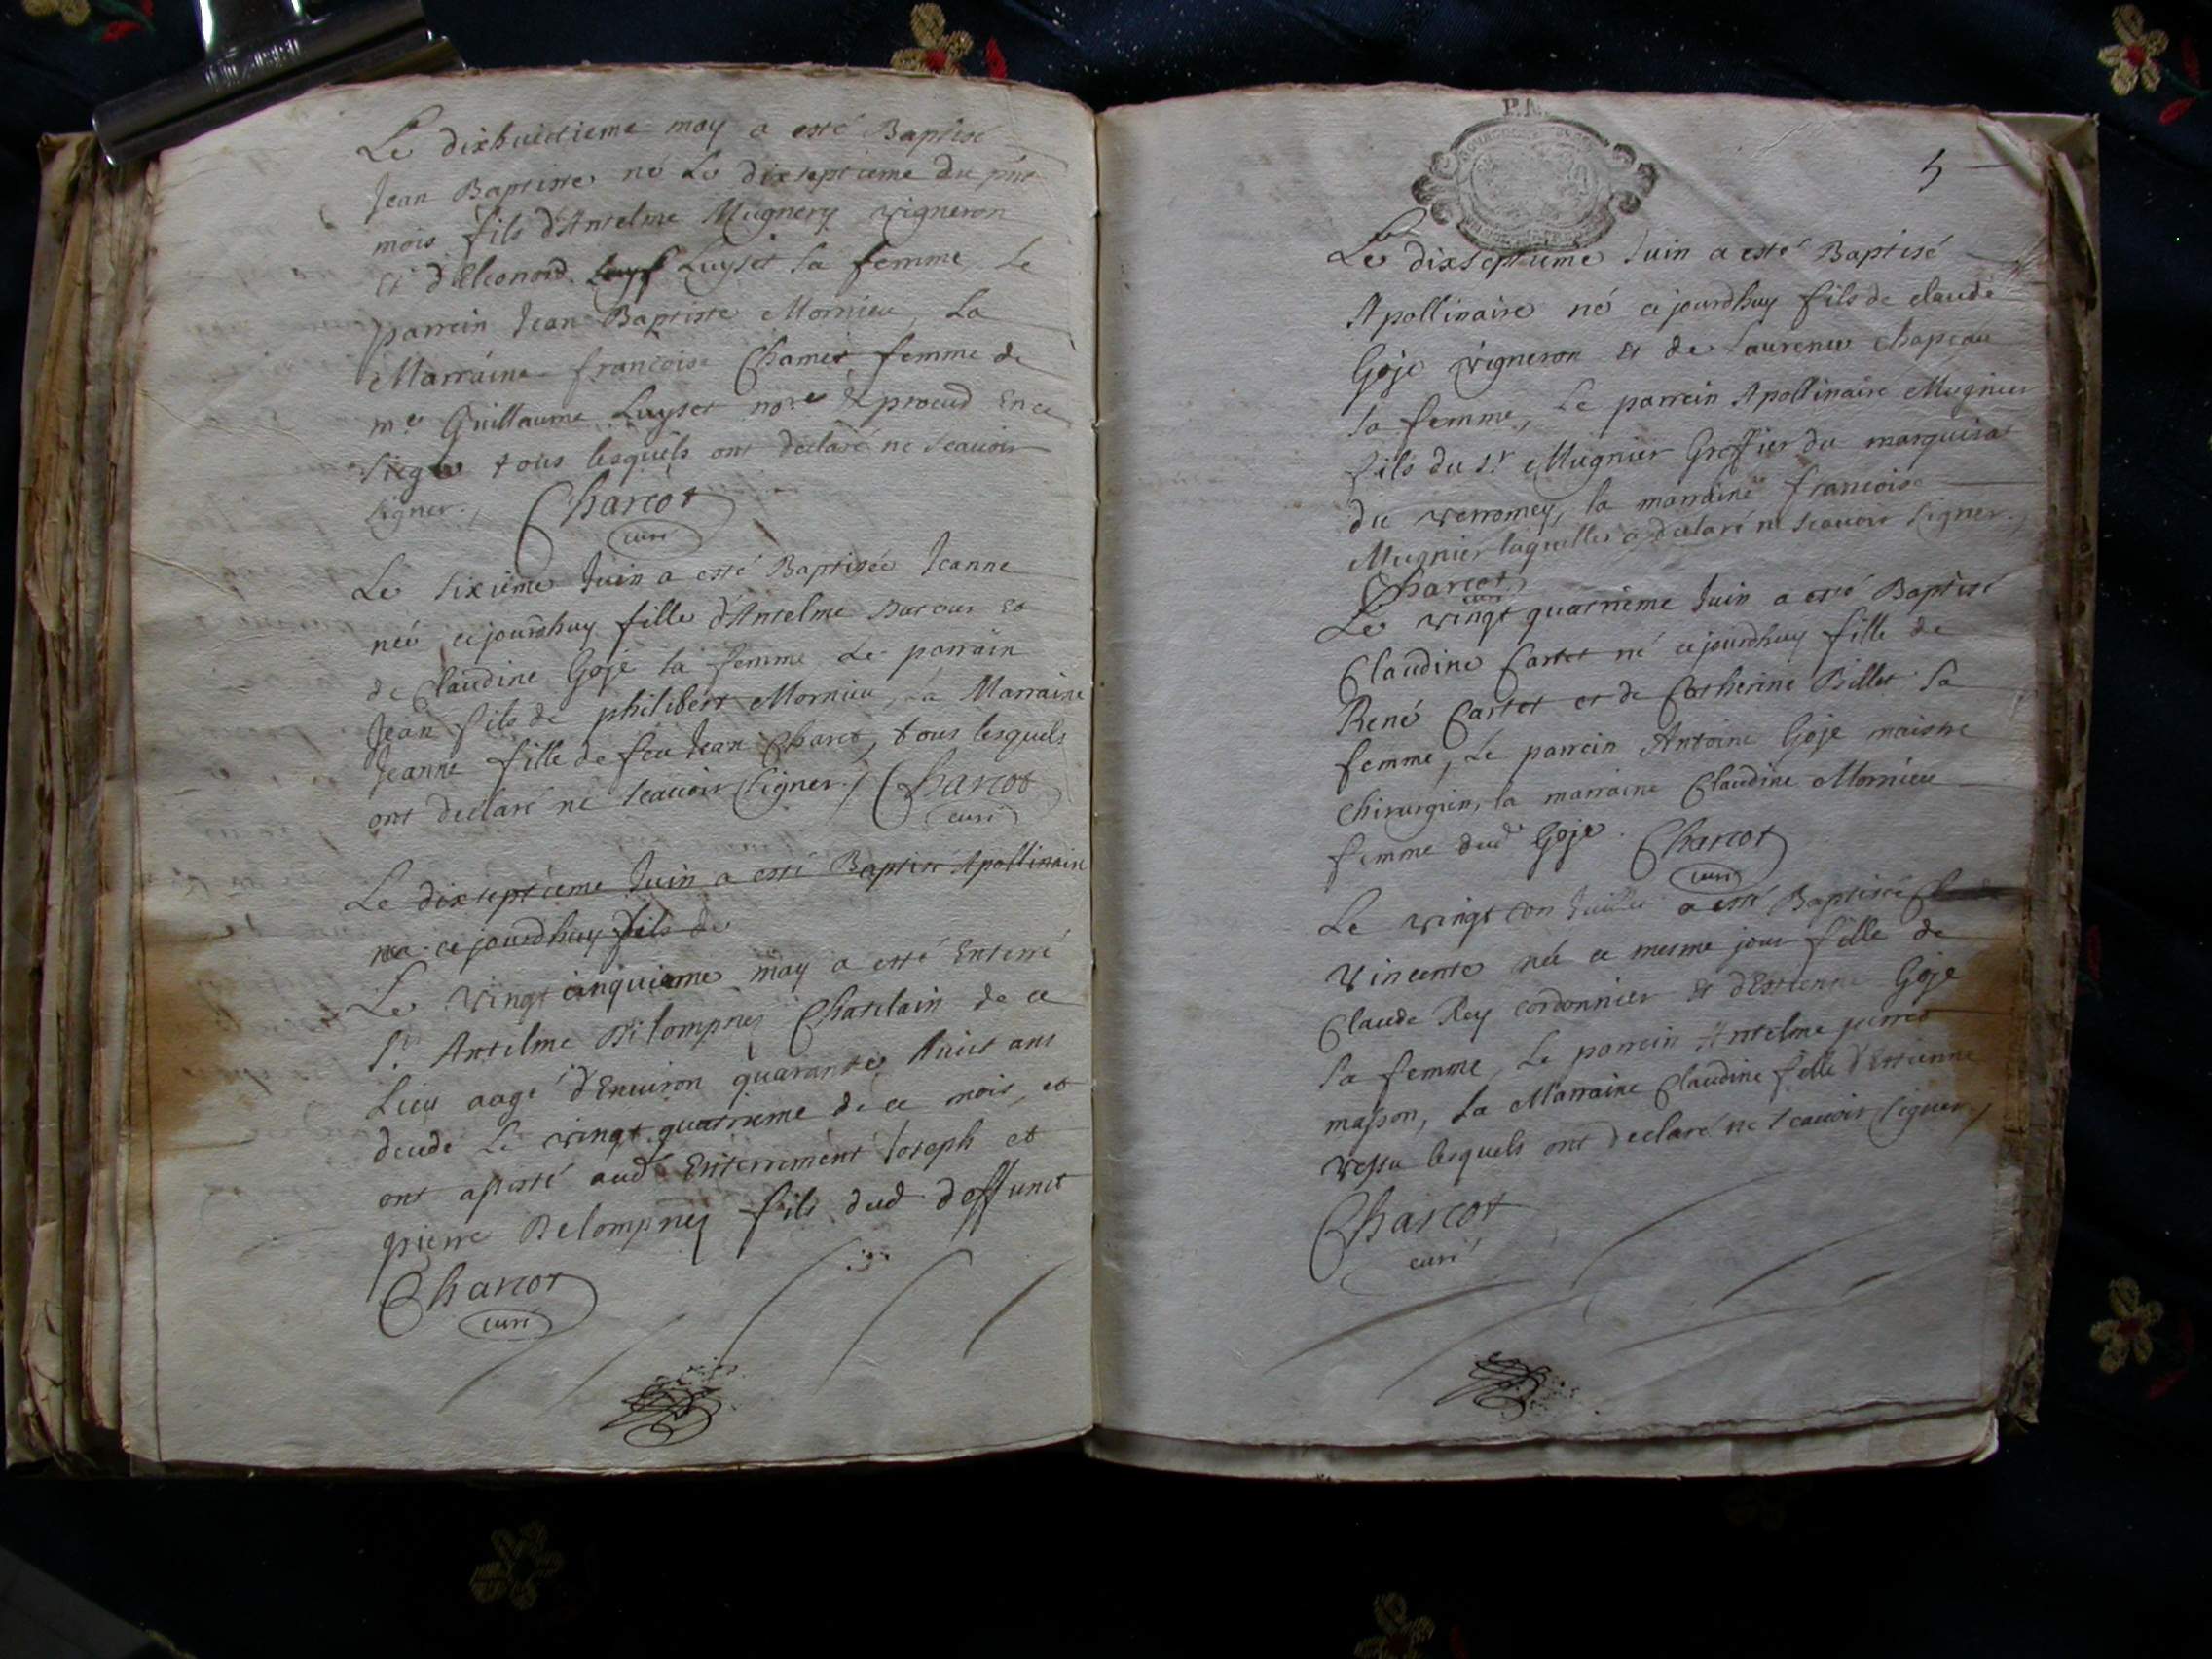 Le dixhuictieme may a esté Baptisé
Jean Baptiste né Le dixseptieme du pñt
mois fils d'Antelme Mugnery vigneron
et d'Eleonord Luyset sa femme Le
parrein Jean Baptiste Mornieu, La
Marraine francoise Chamet femme de
me Guillaume Luyset nore Et procud En ce
siege tous lesquels ont declaré ne scauoir
signer. Charcot
curé
Le sixieme Juin a esté Baptisée Jeanne
neé ce jourdhuy fille d'Antelme et
de Claudine Goje sa femme Le parrain
Jean fils de philibert Mornieu, La Marraine
Jeanne fille de feu Jean Charct, tous lesquels
ont declaré ne scauoir signer./ Charcot
curé
Le dixseptieme Juin a esté Baptisé Apollinaire
né ce jourdhuy fils de
Le vingt cinquieme may a esté Enterré
Sr. Antelme Delompnes Chatelain de ce
Lieu aagé d'Enuiron quarante huict ans
decedé Le vingt quatrieme de ce mois, et
ont assisté aud Enterrement Joseph et
pierre Delompnes fils dud deffunct
Charcot
curé
5
Le dixseptieme Juin a esté Baptisé
Apollinaire né ce jourdhuy fils de claude
Goje vigneron Et de Laurence chapeau
sa femme, Le parrein Apollinaire Mugnier
fils du sr Mugnier Greffier du marquisat
du verromey, la marraine francoise
Mugnier laquelle a declaré ne scauoir signer.
Charcot
curé
Le vingt quatrieme Juin a esté Baptisé
Claudine Cartet né ce jourdhuy fille de
René Cartet et de Catherine Billet sa
femme, Le parrein Antoine Goje maistre
chirurgien, la marraine Claudine Mornieu
femme dud Goje. Charcot
curé
Le vingt Juillet a esté Baptisée
Vincente née ce mesme jour fille de
Claude Rey cordonnier Et d'Estienne Goje
sa femme, Le parrein Antelme perret
masson, La Marraine Claudine fille d'Estienne
lesquels ont declaré ne scauoir signer./
Charcot
curé